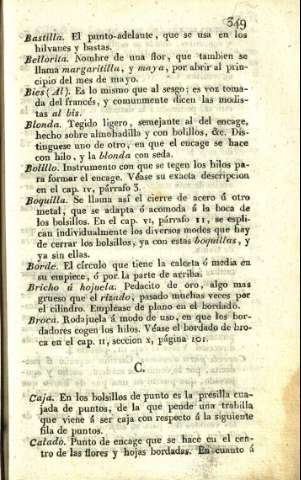 349
Bastilla. El punto-adelante, que se usa en los
hilvanes y bastas.
Bellorita. Nombre de una flor, que tambien se
llama margaritilla, y maya, por abrir al prin-
cipio del mes de mayo.
Bies (Al). Es lo mismo que al sesgo; es voz toma-
da del francés, y comunmente dicen las modis-
tas al bis.
Blonda. Tegido ligero, semejante al del encage,
hecho sobre almohadilla y con bolillos, &c. Dis-
tinguese uno de otro, en que el encage se hace
con hilo, y la blonda con seda.
Bolillo. Instrumento con que se tegen los hilos pa-
ra formar el encage. Véase su exacta descripcion
en el cap. IV, párrafo 3.
Boquilla. Se llama así el cierre de acero ú otro
metal, que se adapta ó acomoda á la boca de
los bolsillos. En el cap. VI, párrafo 11, se espli-
can individualmente los diversos modos que hay
de cerrar los bolsillos, ya con estas boquillas, y
ya sin ellas.
Borde. El círculo que tiene la calceta ó media en
su empiece, ó por la parte de arriba.
Bricho ú hojuela. Pedacito de oro, algo mas
grueso que el rizado, pasado muchas veces por
el cilindro. Empléase de plano en el bordado.
Broca. Rodajuela á modo de uso, en que los bor-
dadores cogen los hilos. Véase el bordado de bro-
ca en el cap. II, seccion X, página 101.
C.
Caja. En los bolsillos de punto es la presilla cua-
jada de puntos, de la que pende una trabilla
que viene á ser caja con respecto á la siguiente
fila de puntos.
Calado. Punto de encage que se hace en el cen-
tro de las flores y hojas bordadas. En cuanto á